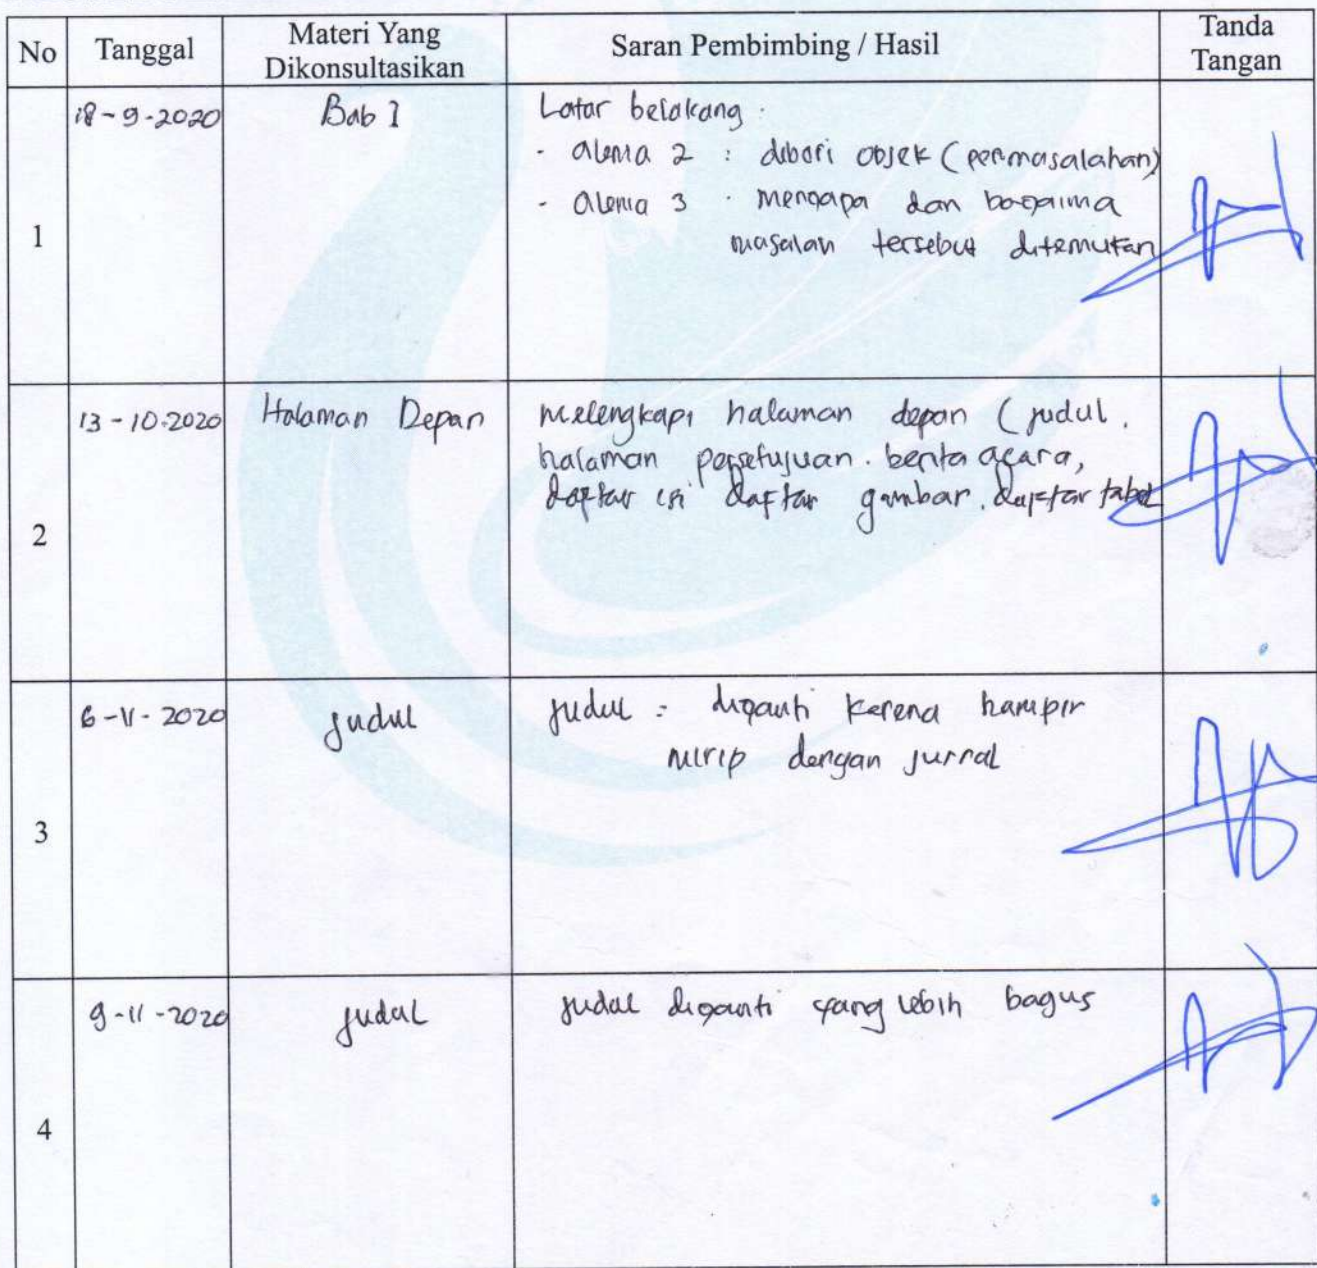 No Tanggal Materi Yang Dikonsultasikan Saran Pembimbing / Hasil Tanda Tangan
1 18-9-2020 Bab I Latar belakang:
- alenia 2 : diberi objek (permasalahan)
- alenia 3 : mengapa dan bagaima
masalah tersebut ditemukan
2 13-10-2020 Halaman Depan melengkapi halaman depan (judul,
halaman persetujuan, berita acara,
daftar isi daftar gambar, daftar tabel
3 6-11-2020 judul judul : diganti karena hampir
mirip dengan jurnal
4 9-11-2020 judul judul diganti yang lebih bagus